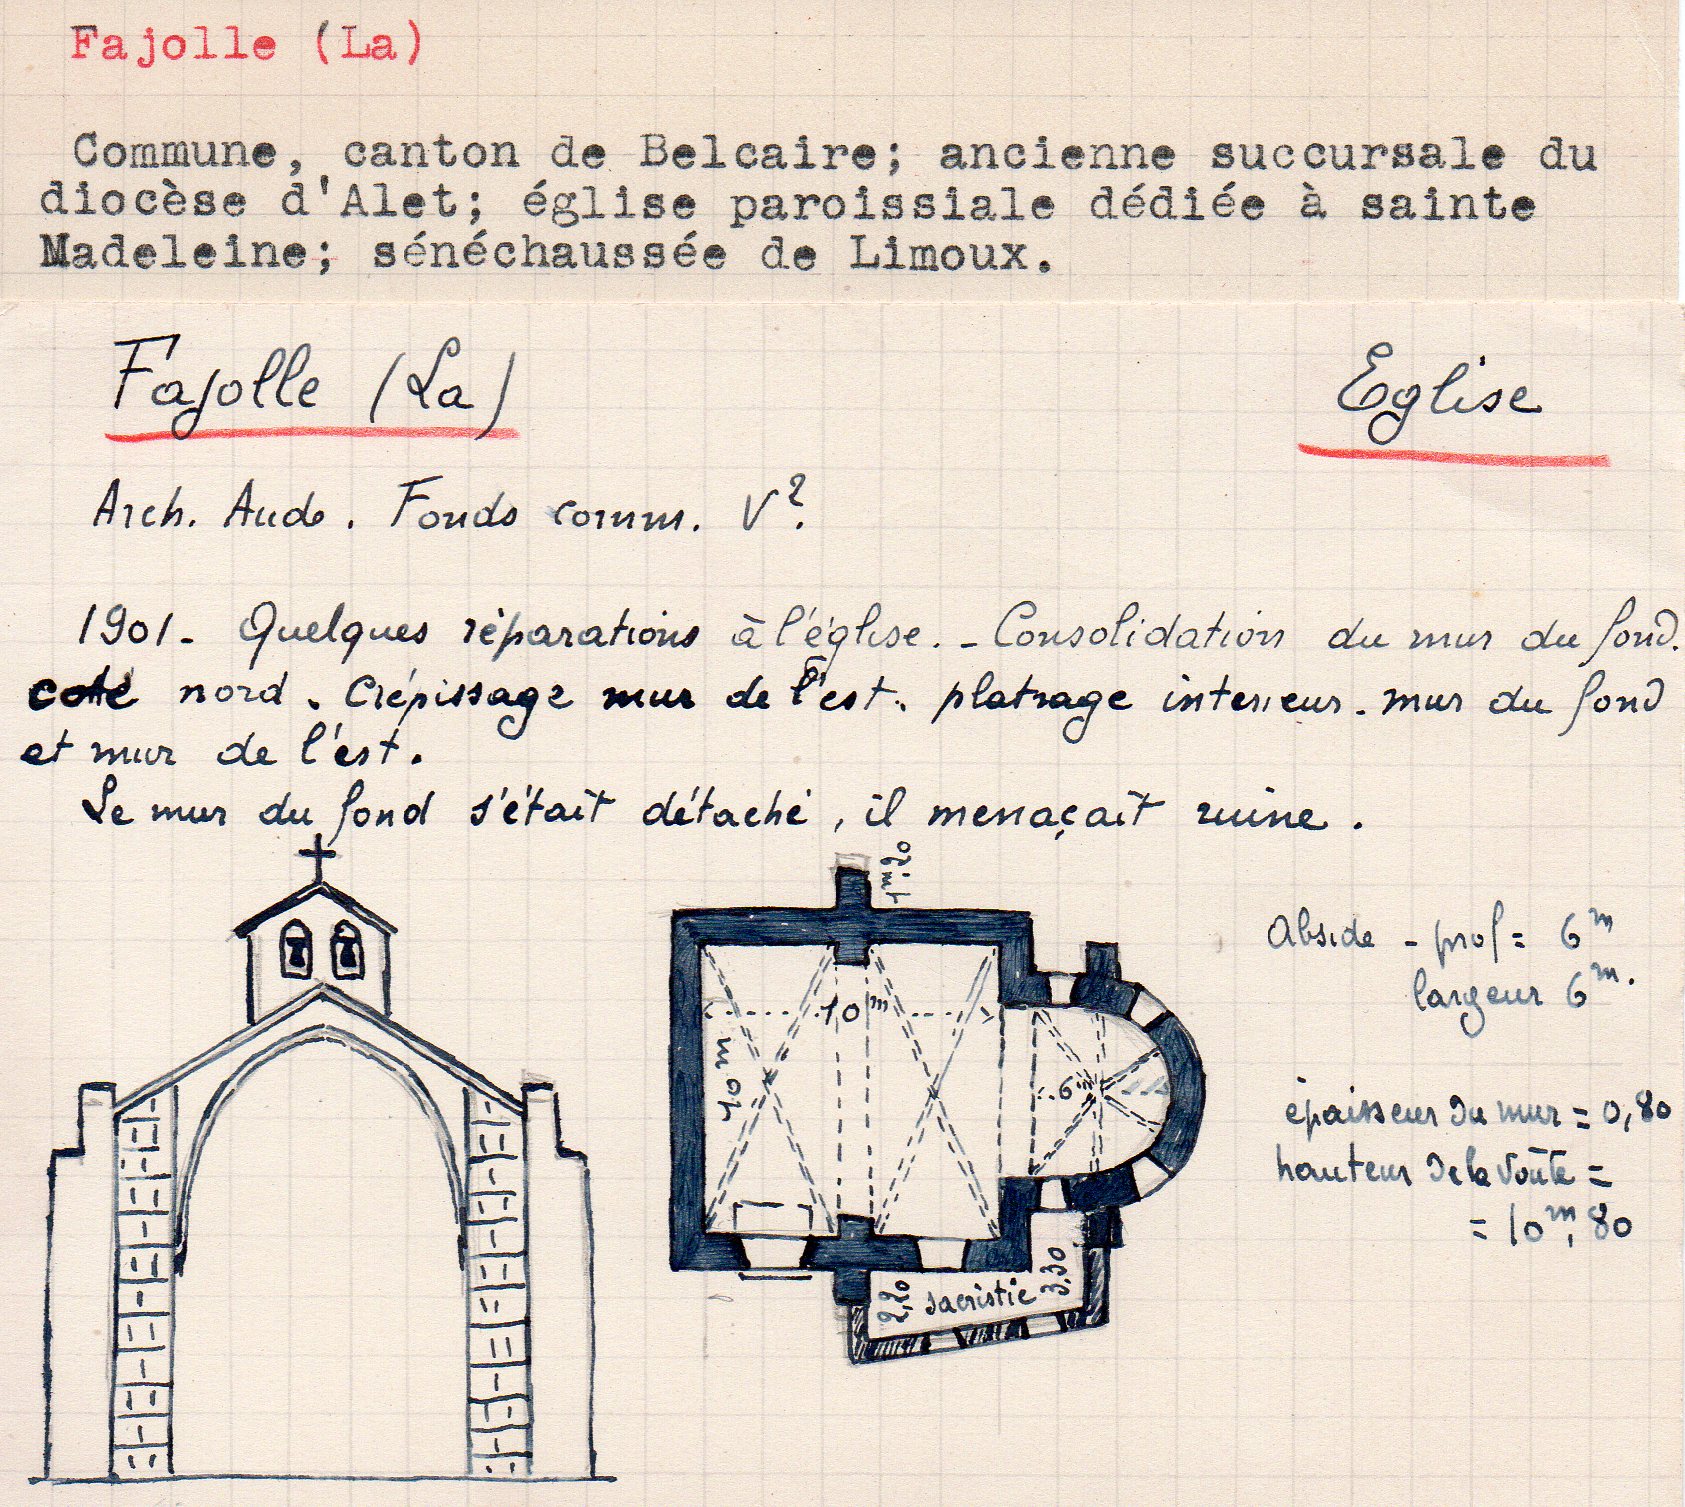 Fajolle (La)
Commune, canton de Belcaire; ancienne succursale du
diocèse d'Alet; église paroissiale dédiée à sainte
Madeleine; sénéchaussée de Limoux.
Fajolle (La)
Eglise
Arch. Aude. Fonds comm. V?
1901- Quelques réparations à l'église. - Consolidation du mur du fond.
coté nord. Crépissage mur de l'est. platrage interieur. mur du fond
et mur de l'est.
Le mur du fond s'était détaché, il menaçait ruine.
1m.20
10m
10m
6m
2,20
sacristie
3,30
Abside - prof = 6m
largeur 6m.
épaisseur du mur = 0,80
hauteur de la voûte =
= 10m,80